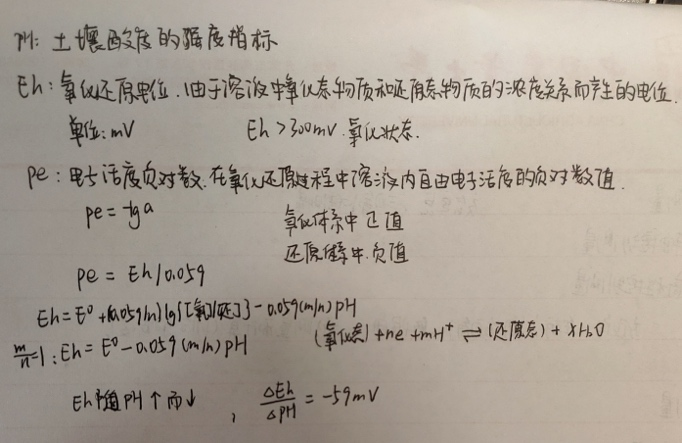 PH: 土壤酸度的强度指标
Eh: 氧化还原电位.由于溶液中氧化态物质和还原态物质的浓度关系而产生的电位.
单位: mV Eh>300mV.氧化状态.
pe: 电子活度负对数.在氧化还原过程中溶液内自由电子活度的负对数值.
pe = -lga 氧化体系中正值
还原体系中.负值
pe = Eh/0.059
Eh=E⁰+(0.059/n)lg{[氧]/[还]}-0.059(m/n)pH
(氧化态)+ne+mH⁺⇌(还原态)+xH₂O
m/n=1: Eh=E⁰-0.059(m/n)pH
Eh随PH↑而↓, ΔEh/ΔPH = -59mV